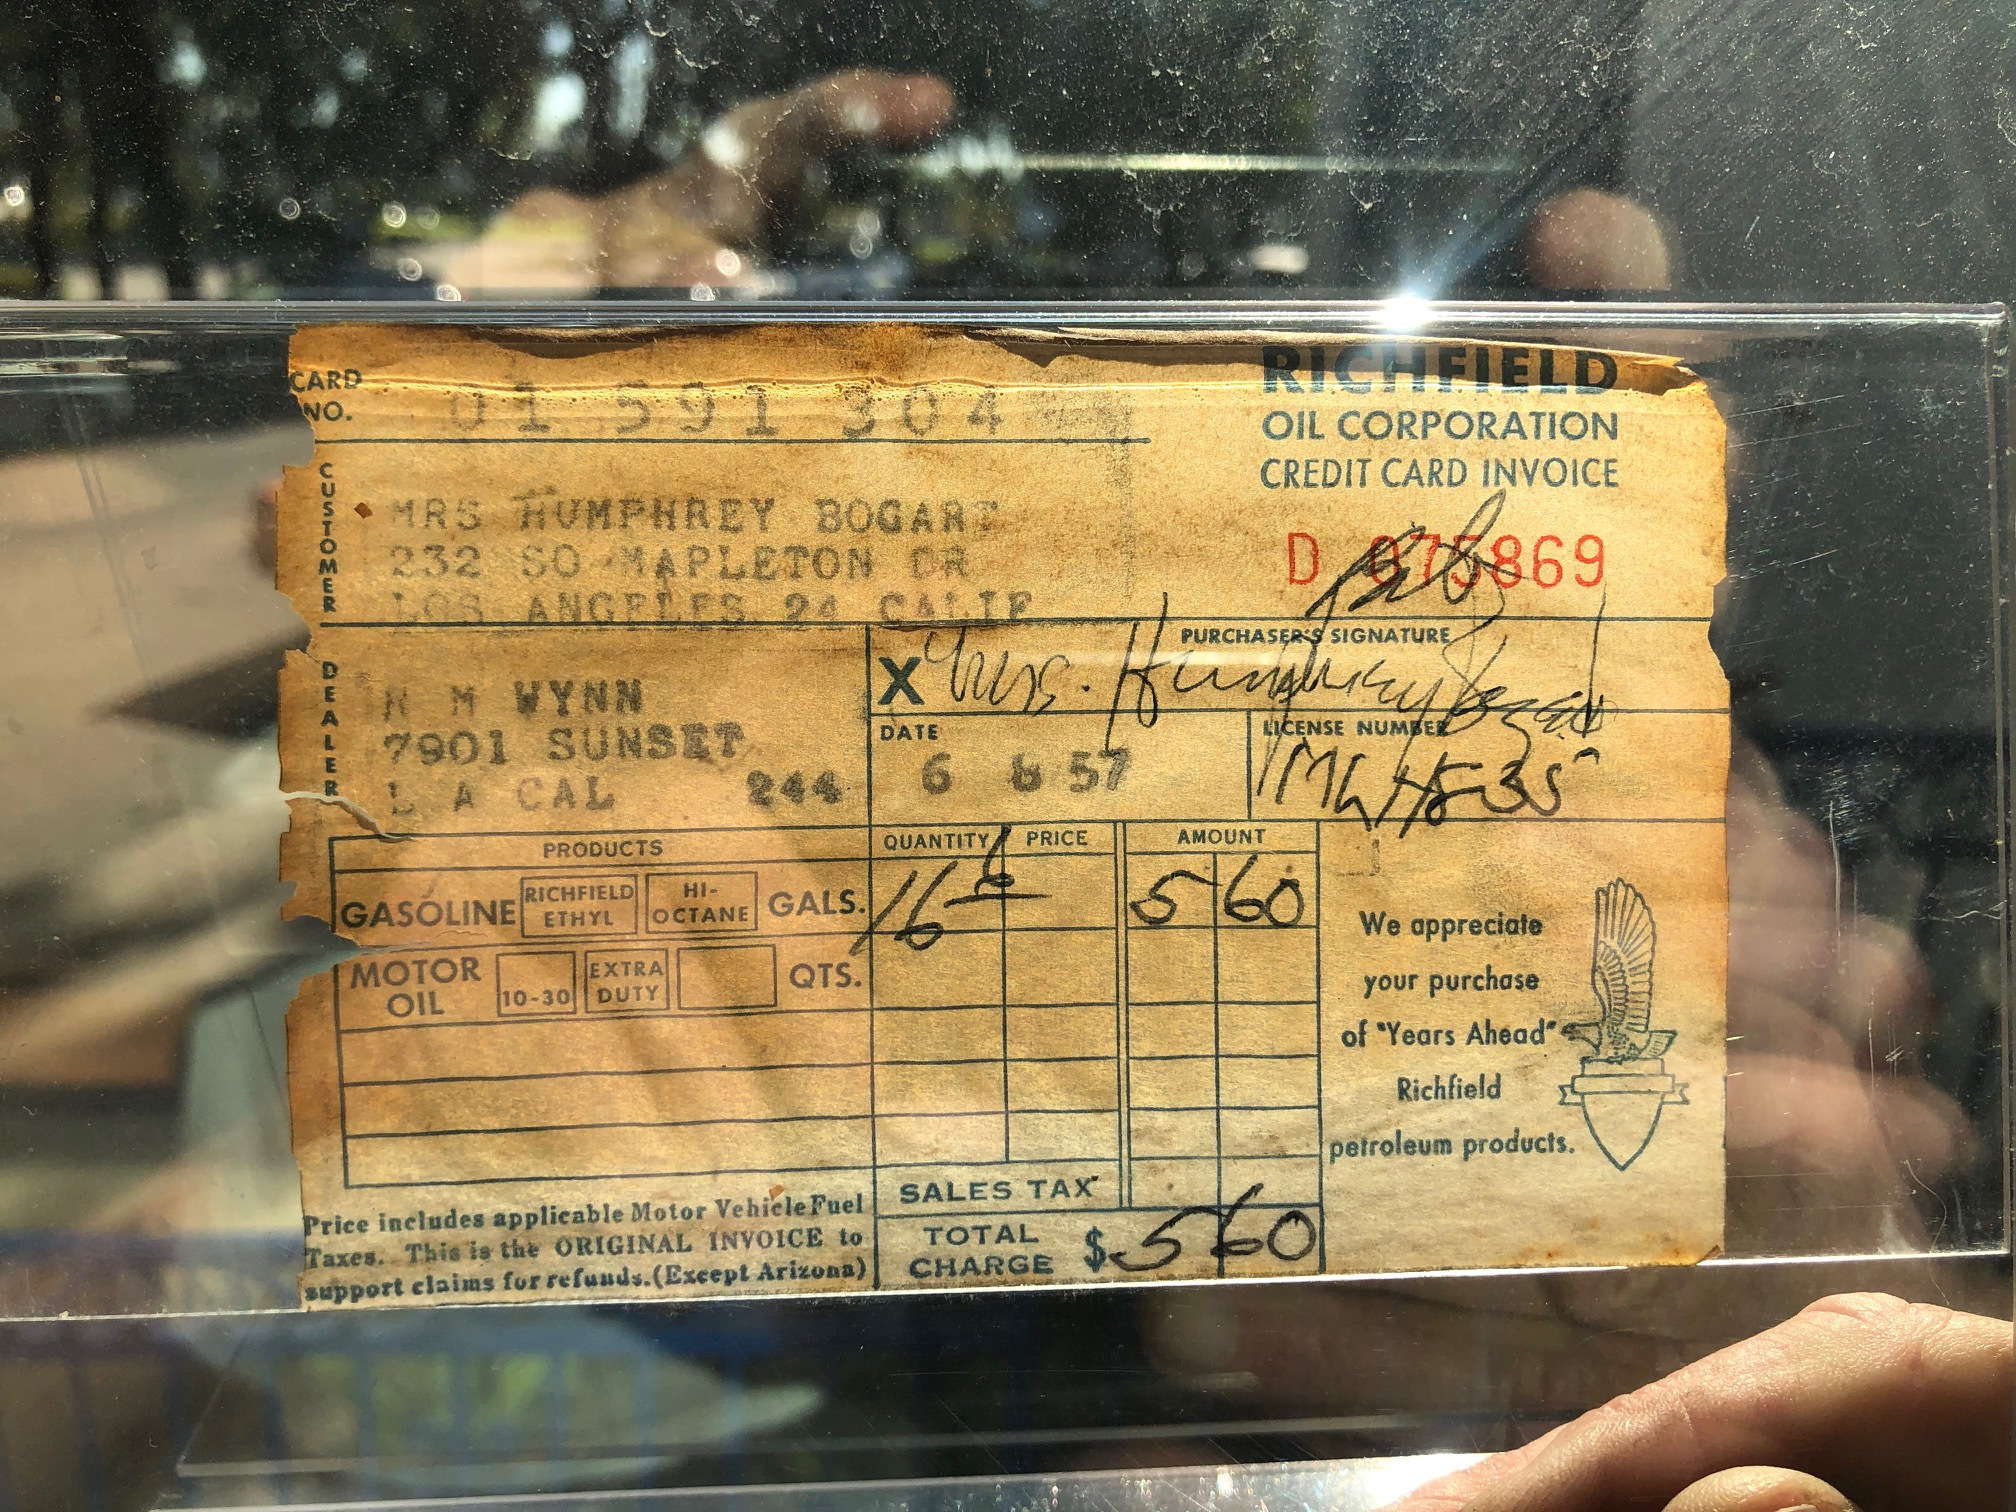 CARD
NO.
01 591 304
RICHFIELD
OIL CORPORATION
CREDIT CARD INVOICE
D 075869
CUSTOMER
MRS HUMPHREY BOGART
232 SO MAPLETON DR
LOS ANGELES 24 CALIF
DEALER
R M WYNN
7901 SUNSET
L A CAL 244
PURCHASER'S SIGNATURE
X Mrs. Humphrey Bogart
DATE
6 6 57
LICENSE NUMBER
PRODUCTS
QUANTITY
PRICE
AMOUNT
GASOLINE
RICHFIELD
ETHYL
HI-
OCTANE
GALS.
16 6
5 60
MOTOR
OIL
10-30
EXTRA
DUTY
QTS.
We appreciate
your purchase
of "Years Ahead"
Richfield
petroleum products.
SALES TAX
TOTAL
CHARGE $ 5 60
Price includes applicable Motor Vehicle Fuel
Taxes. This is the ORIGINAL INVOICE to
support claims for refunds. (Except Arizona)